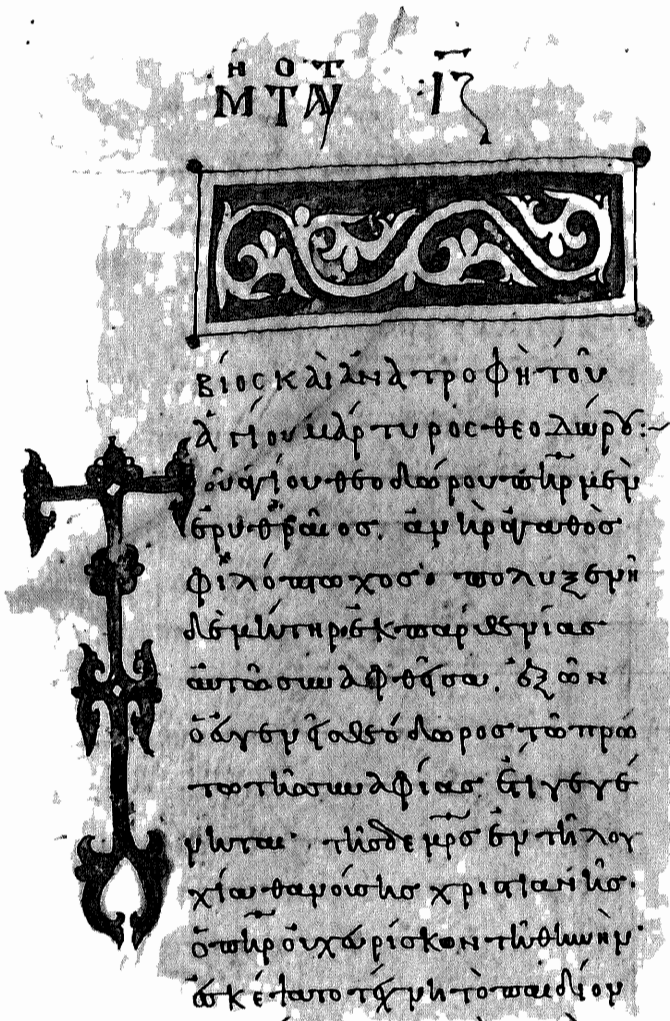 η ο τ
ΜΤΑΥ :ΙΖ
ΒΙΟC ΚΑΙ ἈΝΑΤΡΟΦῊ ΤΟΥ͂
ἁγίου μάρτυρος θεοδώρου:~
Τοῦ ἁγίου θεοδώρου ὁ πηρ μὲν
ἐρυθραῖος, ἀνὴρ ἀγαθὸς
φιλόπτωχος· πολυξένη
δὲ μήτηρ ἐκ παρθενίας
αὐτῶ συναφθεῖσα. ἐξ ὧν
ὁ εὐγενὴς θεόδωρος τῶ πρώ
τω τῆς συναφίας ἔτι γεγέ
νηται· τῆς δὲ μρς ἐν τῆ λογ
χία θανούσης χριστιανῆς.
ὁ πηρ οὐχ εὑρίσκων τιθηνὴν
ἐσκέψατο τέχνη τὸ παιδίον